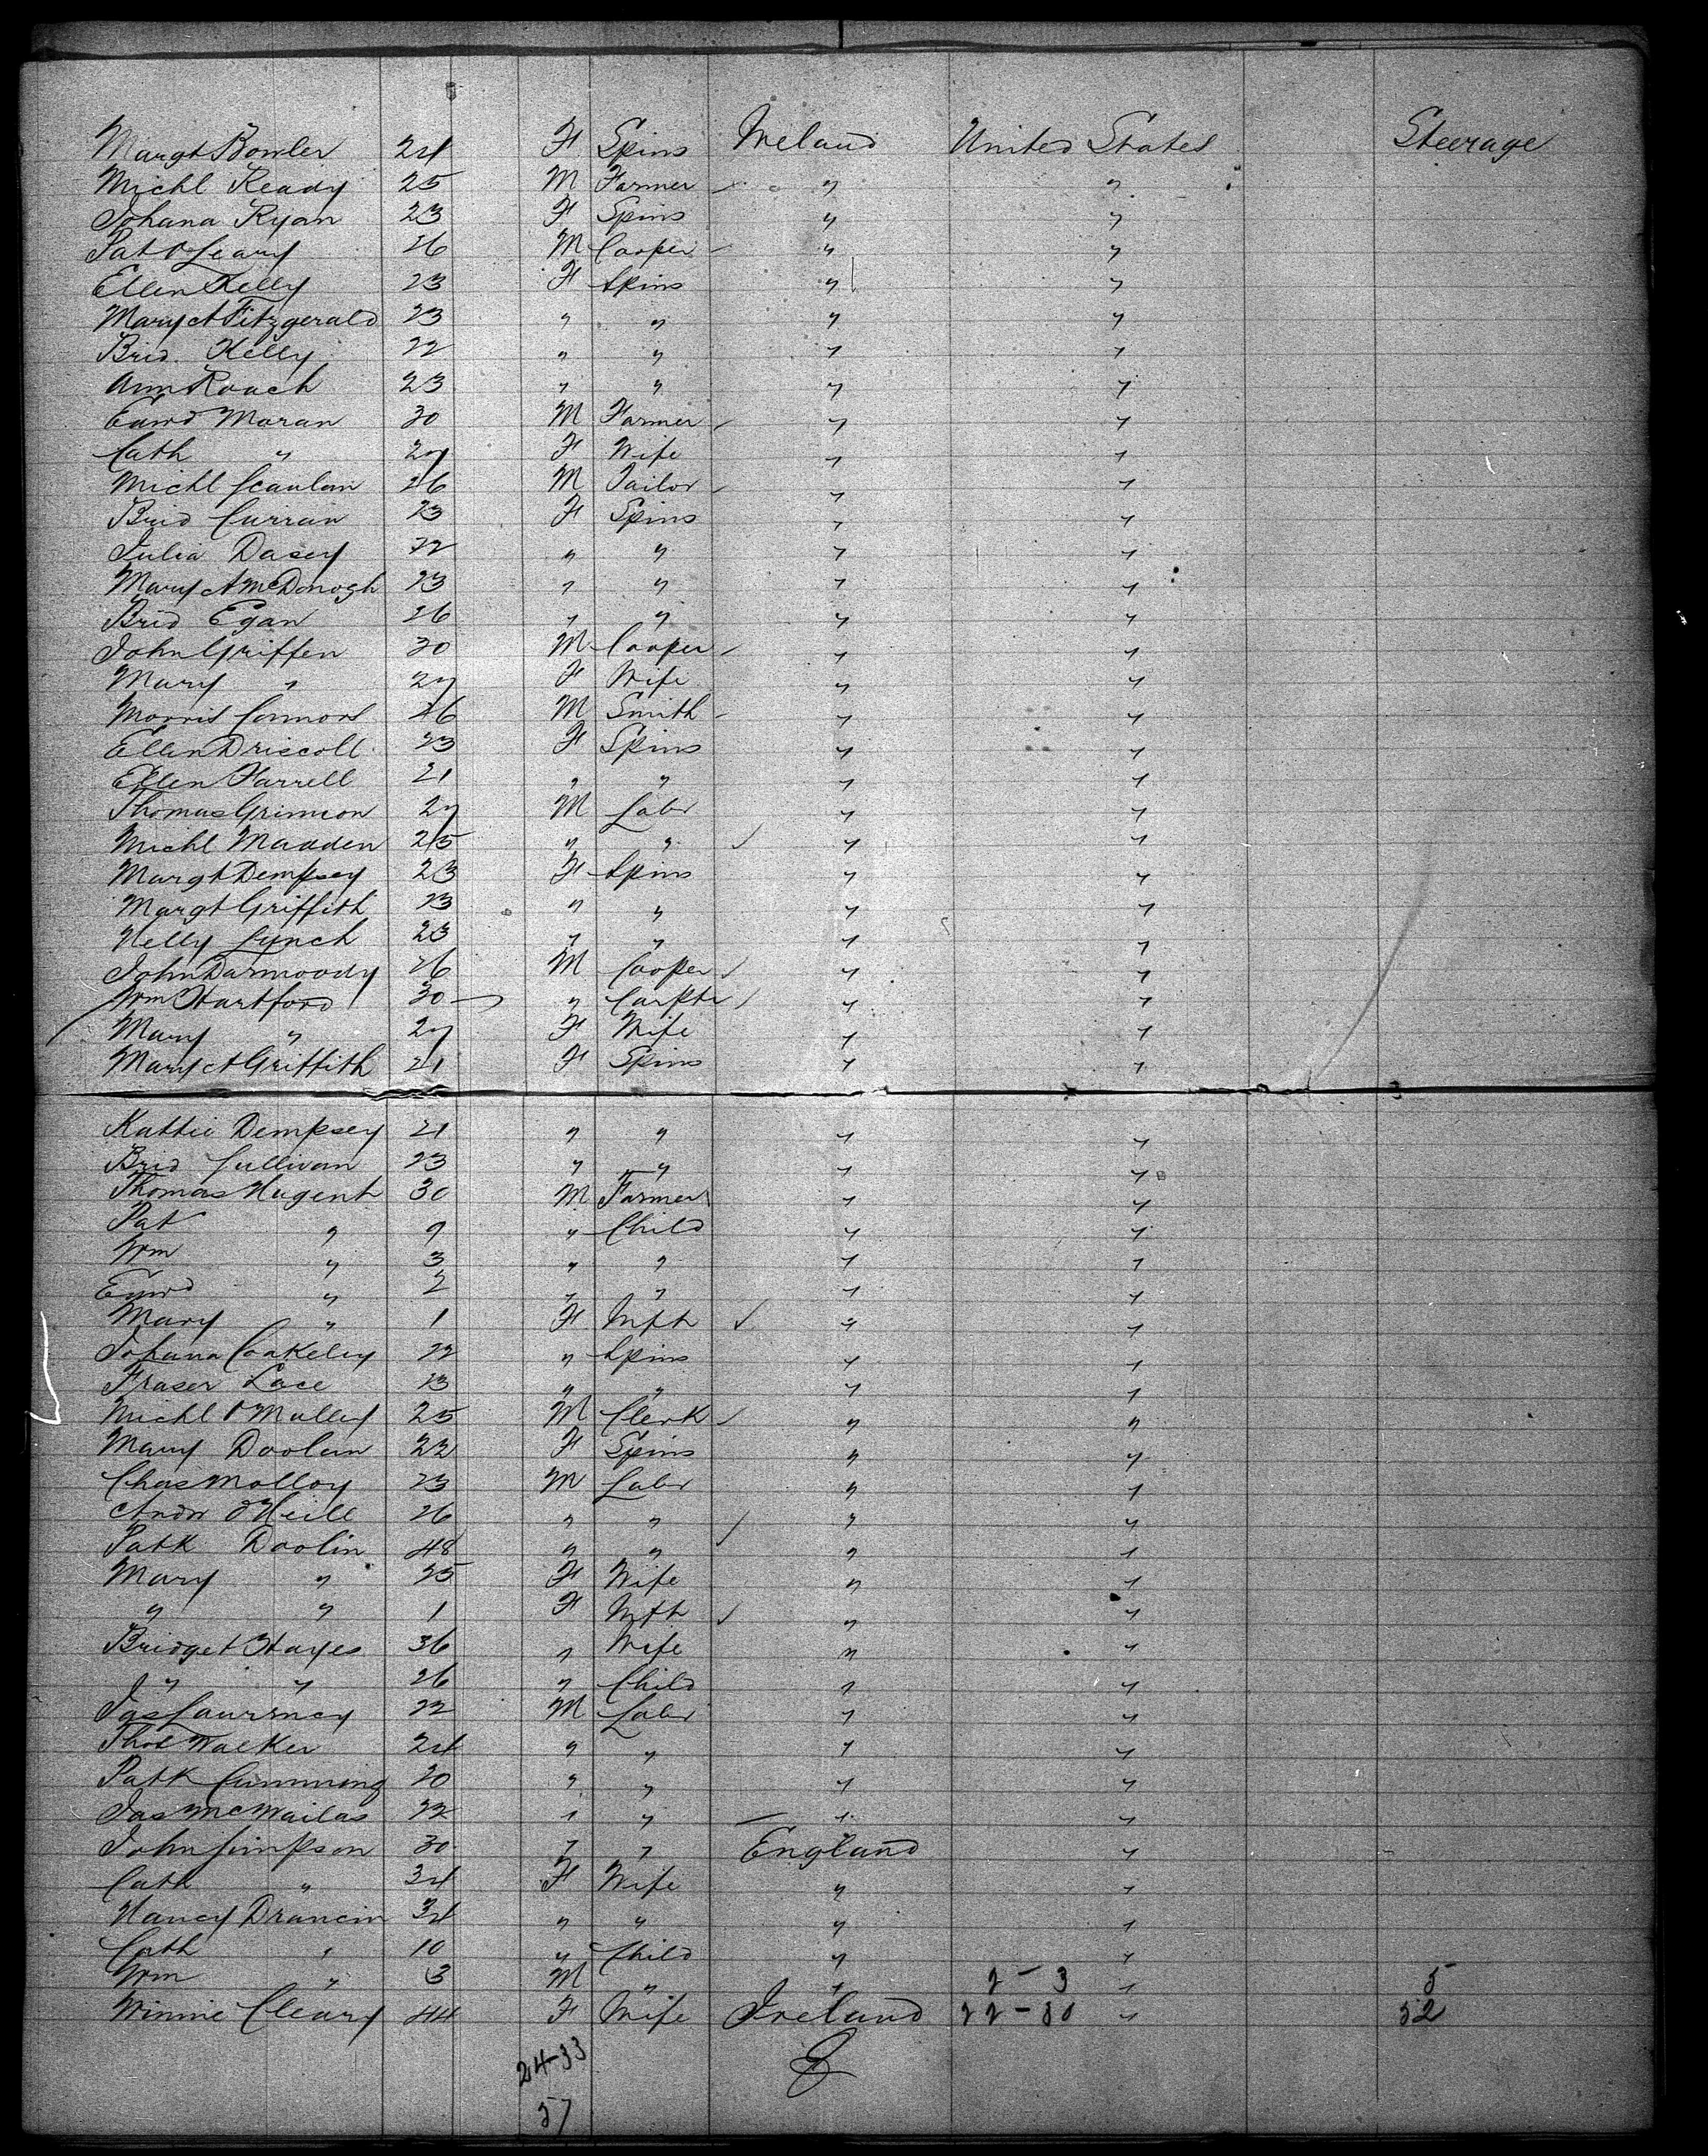 Margt Bowler 24 F Spins Ireland United States Steerage
Michl Ready 25 M Farmer " "
Johana Ryan 23 F Spins " "
Pat O'Leary 26 M Cooper " "
Ellen Kelly 23 F Spins " "
Mary A Fitzgerald 23 " " " "
Brid Kelly 22 " " " "
Ann Roach 23 " " " "
Edwd Moran 30 M Farmer " "
Cath " 27 F Wife " "
Michl Scanlan 26 M Tailor " "
Brid Curran 23 F Spins " "
Julia Dasey 22 " " " "
Mary A McDonogh 23 " " " "
Brid Egan 26 " " " "
John Griffen 30 M Cooper " "
Mary " 27 F Wife " "
Morris Connors 26 M Smith " "
Ellen Driscoll 23 F Spins " "
Ellen Farrell 21 " " " "
Thomas Grimson 27 M Labr " "
Michl Madden 25 " " " "
Margt Dempsey 23 F Spins " "
Margt Griffith 23 " " " "
Nelly Lynch 23 " " " "
John Darmoody 26 M Cooper " "
Wm Hartford 30 " Carptr " "
Mary " 27 F Wife " "
Mary A Griffith 21 F Spins " "
Kattie Dempsey 21 " " " "
Brid Sullivan 23 " " " "
Thomas Nugent 30 M Farmer " "
Pat " 9 " Child " "
Wm " 3 " " " "
Edwd " 2 " " " "
Mary " 1 F Inft " "
Johana Coakeley 22 " Spins " "
Fraser Lace 23 " " " "
Michl O'Malley 25 M Clerk " "
Mary Doolan 22 F Spins " "
Chas Molloy 23 M Labr " "
Andw O'Neill 26 " " " "
Patk Doolin 48 " " " "
Mary " 25 F Wife " "
" " 1 F Inft " "
Bridget Hayes 36 " Wife " "
" " 26 " Child " "
Jas 22 M Labr " "
Thos Walker 24 " " " "
Patk Cumming 20 " " " "
Jas 22 " " " "
John Simpson 30 " " England "
Cath " 34 F Wife " "
Nancy 34 " " " "
Cath " 10 " Child " "
Wm " 3 M " " 2-3 " 5
Winnie Cleary 44 F Wife Ireland 22-30 " 52
24-33
57